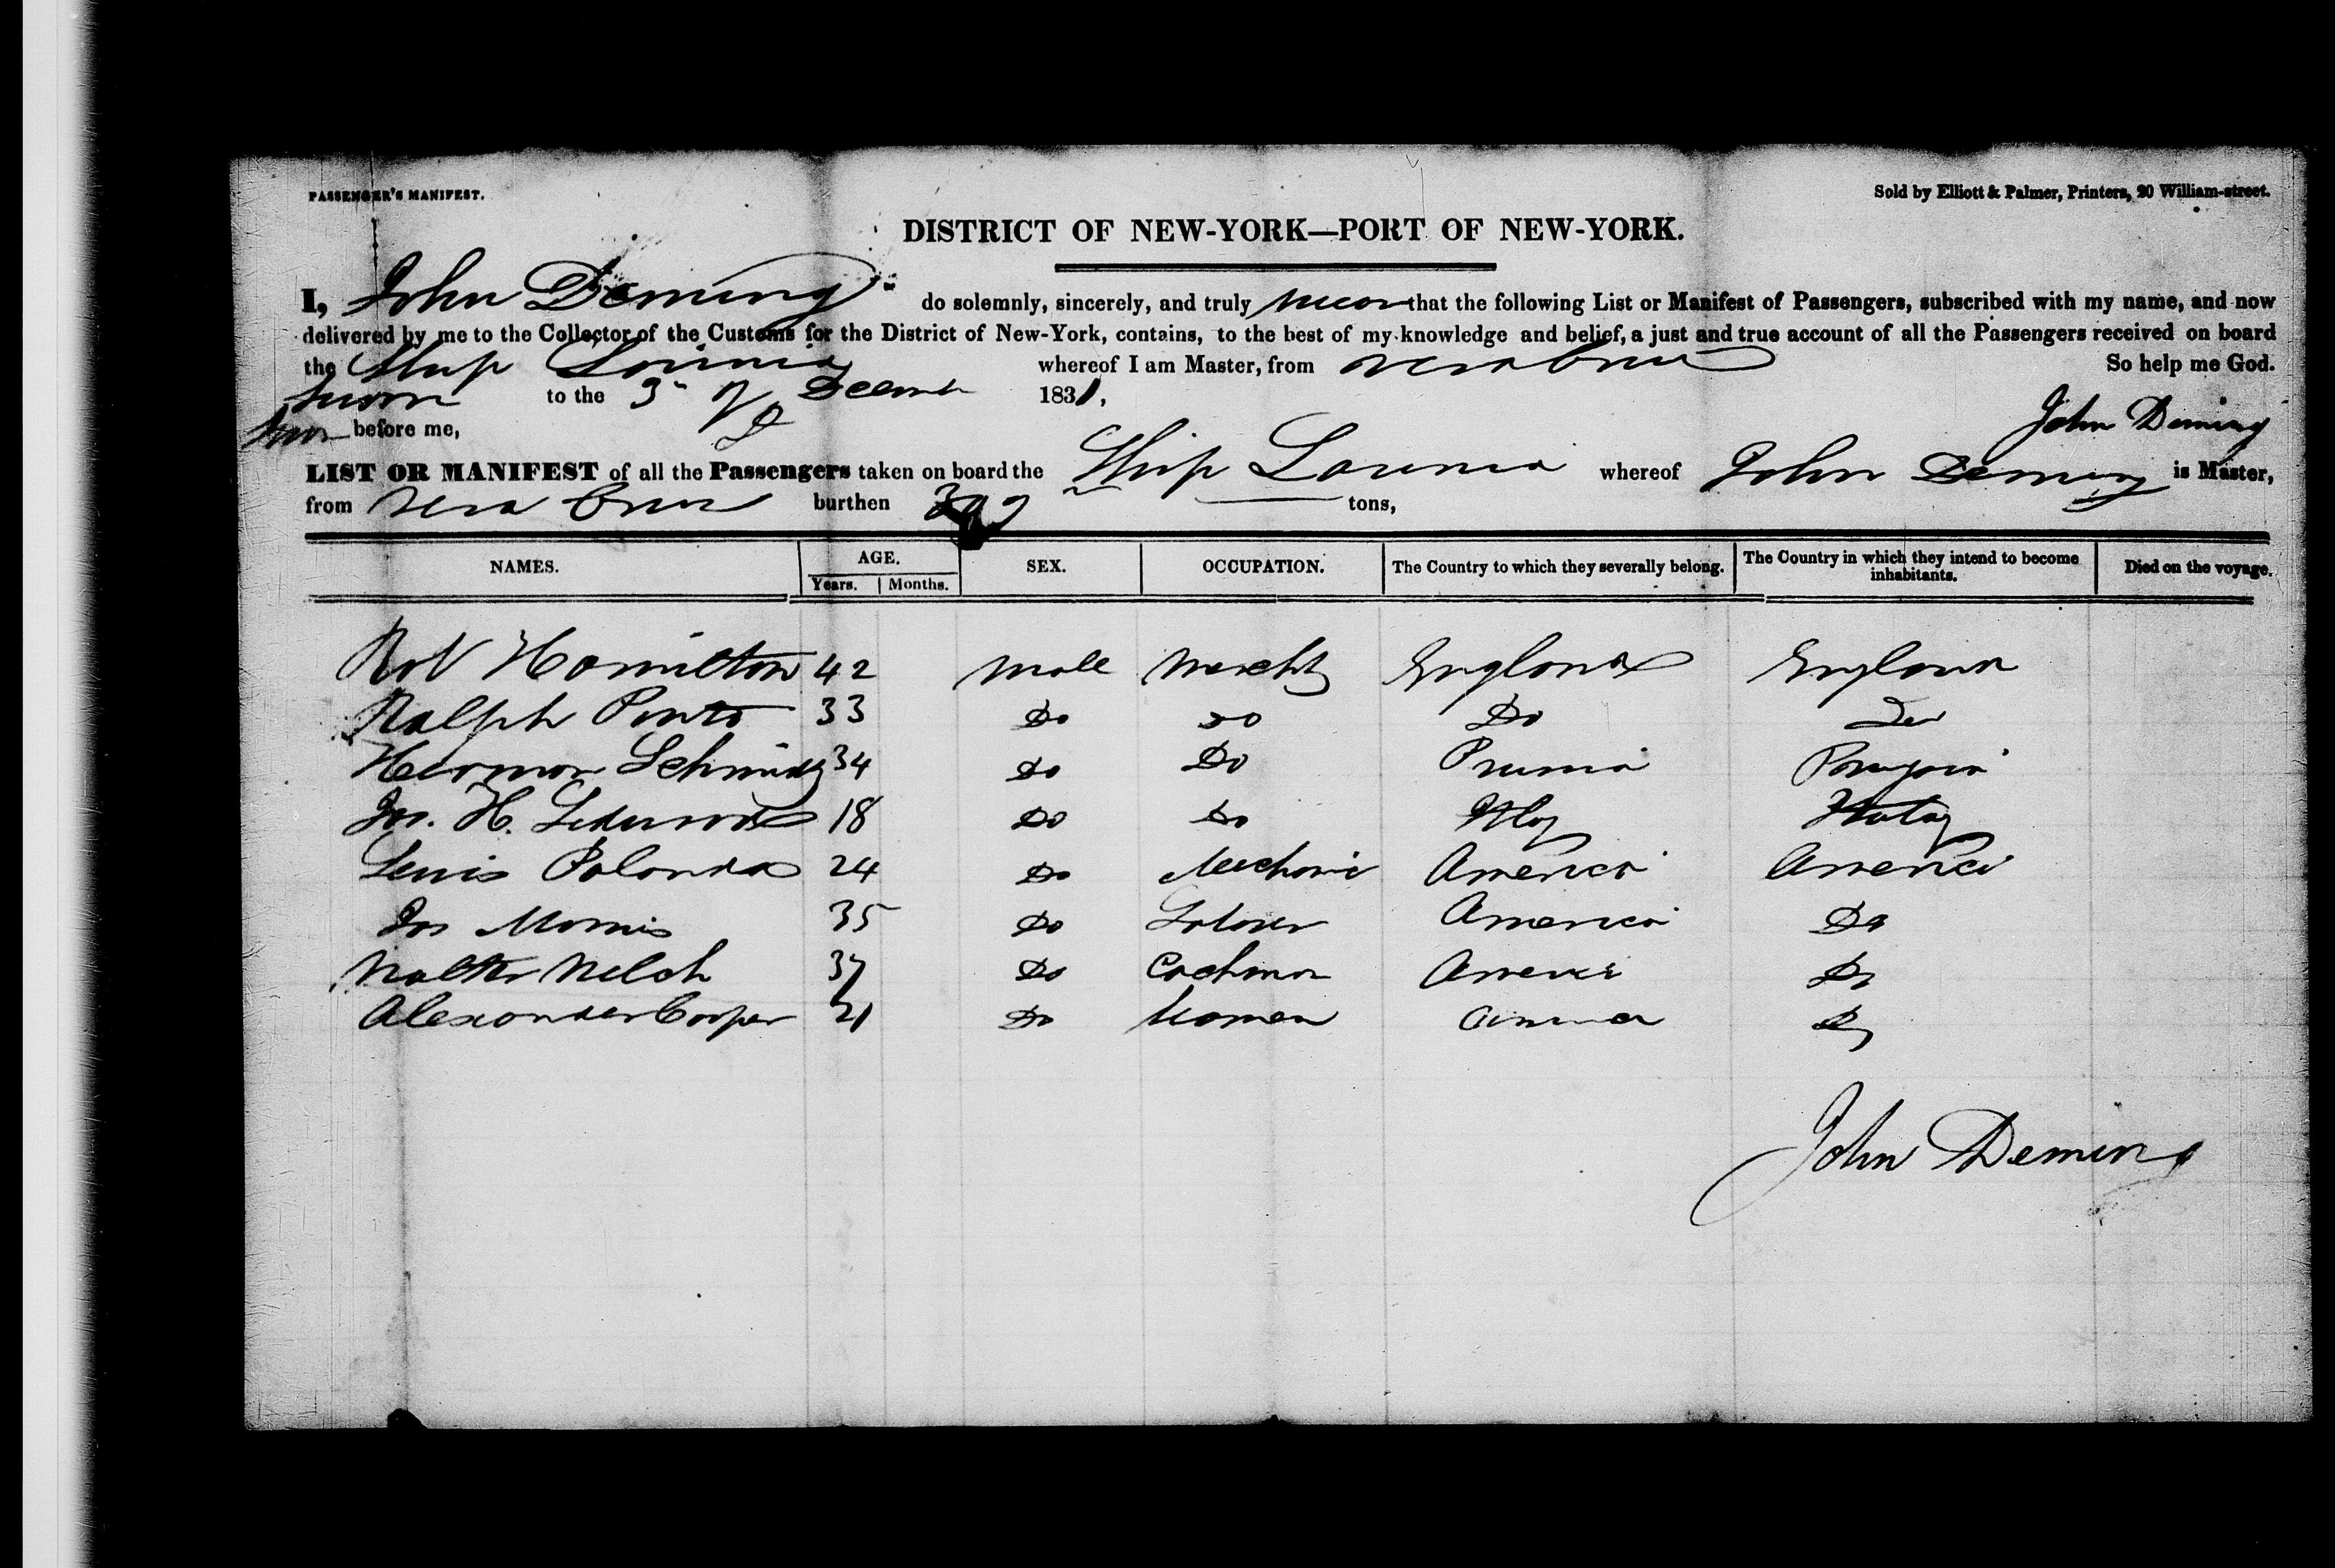 PASSENGER'S MANIFEST.
Sold by Elliott & Palmer, Printers, 20 William-street.
DISTRICT OF NEW-YORK—PORT OF NEW-YORK.
I, John Deming do solemnly, sincerely, and truly swear that the following List or Manifest of Passengers, subscribed with my name, and now
delivered by me to the Collector of the Customs for the District of New-York, contains, to the best of my knowledge and belief, a just and true account of all the Passengers received on board
the Ship whereof I am Master, from Vera Cruz So help me God.
Sworn to the 3 of Decemr 1831,
before me, John Deming
LIST OR MANIFEST of all the Passengers taken on board the Ship whereof John Deming is Master,
from Vera Cruz burthen tons,
NAMES. AGE. SEX. OCCUPATION. The Country to which they severally belong. The Country in which they intend to become inhabitants. Died on the voyage.
Years. Months.
Rob Hamilton 42 Male Mercht England England
Ralph Ponto 33 Do Do Do Do
Herman Schmidt 34 Do Do Prussia
Jos. H. 18 Do Do Italy Italy
Lewis 24 Do Mechanic America America
Jos Morris 35 Do Laborer America Do
Walter Welch 37 Do Coachman America Do
Alexander Cooper 21 Do America Do
John Deming